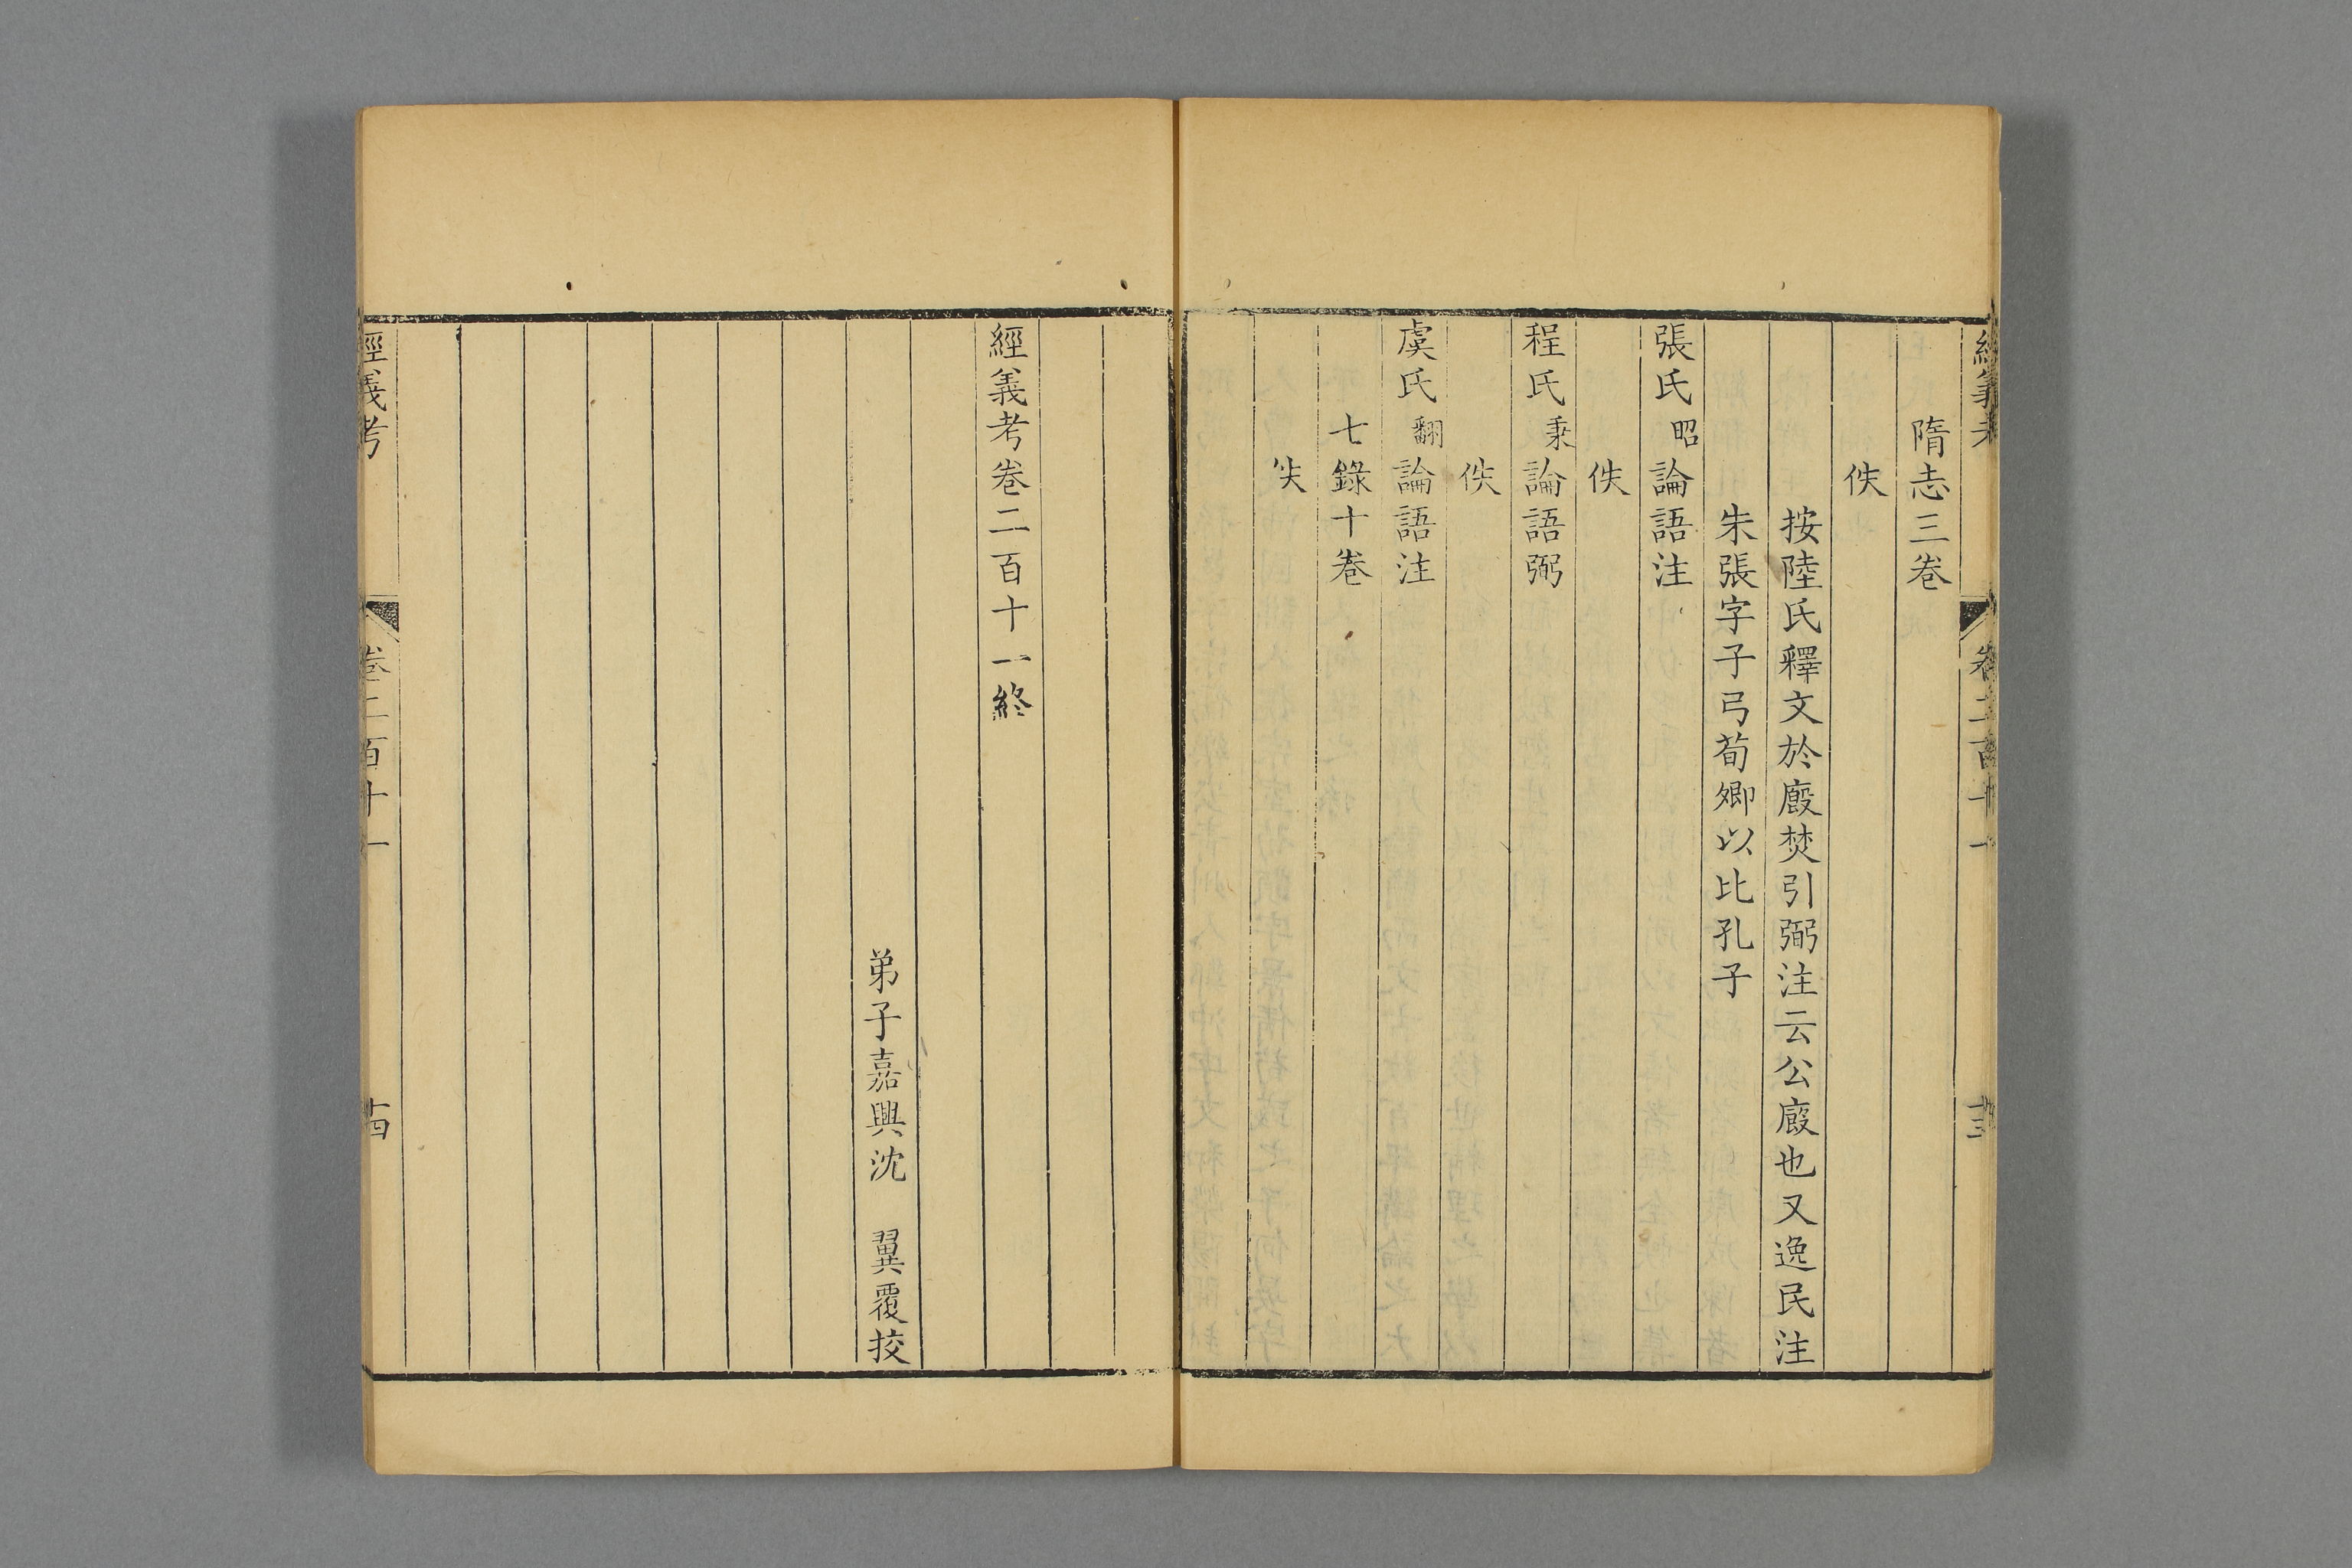 經義考 卷二百十一 十三
隋志三卷
佚
按陸氏釋文於廄焚引弼注云公廄也又逸民注
朱張字子弓荀卿以比孔子
張氏昭論語注
佚
程氏秉論語弼
佚
虞氏翻論語注
七錄十卷
佚
經義考卷二百十一終
弟子嘉興沈 翼覆挍
經義考 卷二百十一 十四